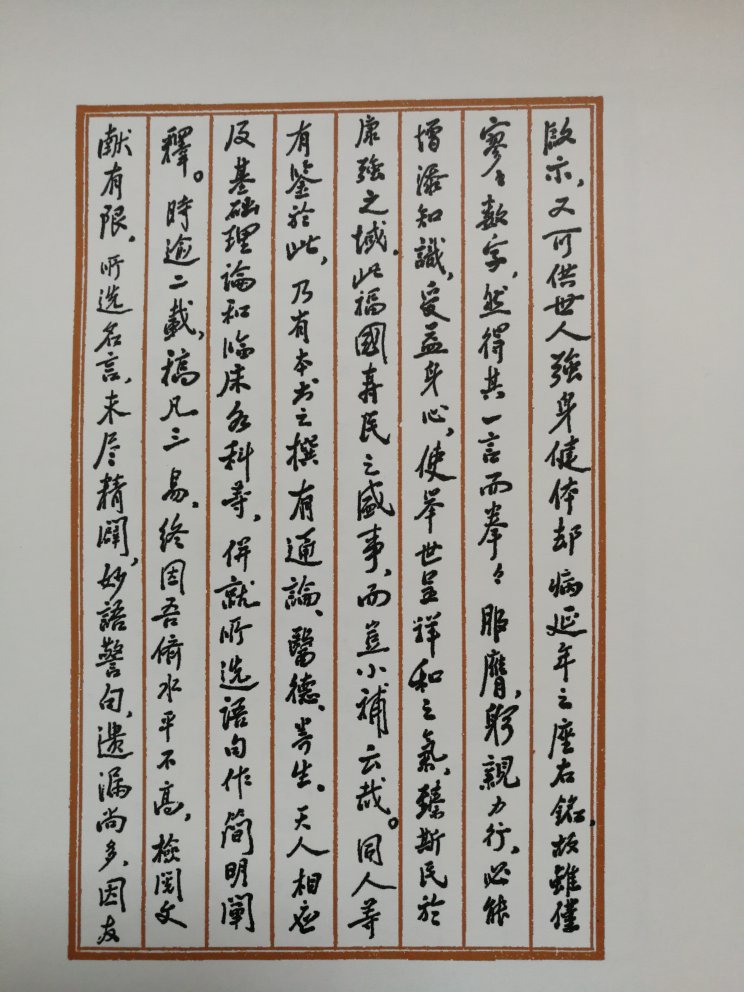 啟示，又可供世人強身健体却病延年之座右銘，故雖僅
寥々數字，然得其一言而拳々服膺，躬親力行，必能
增添知識，受益身心，使举世呈祥和之氣，臻斯民於
康強之域，此福國寿民之盛事，而豈小補云哉。同人等
有鉴於此，乃有本书之撰，有通論、醫德、养生、天人相应
及基础理論和临床各科等，併就所选語句作简明闡
釋。時逾二載，稿凡三易，終因吾儕水平不高，检閱文
献有限，所选名言，未尽精闢，妙語警句，遗漏尚多，因友